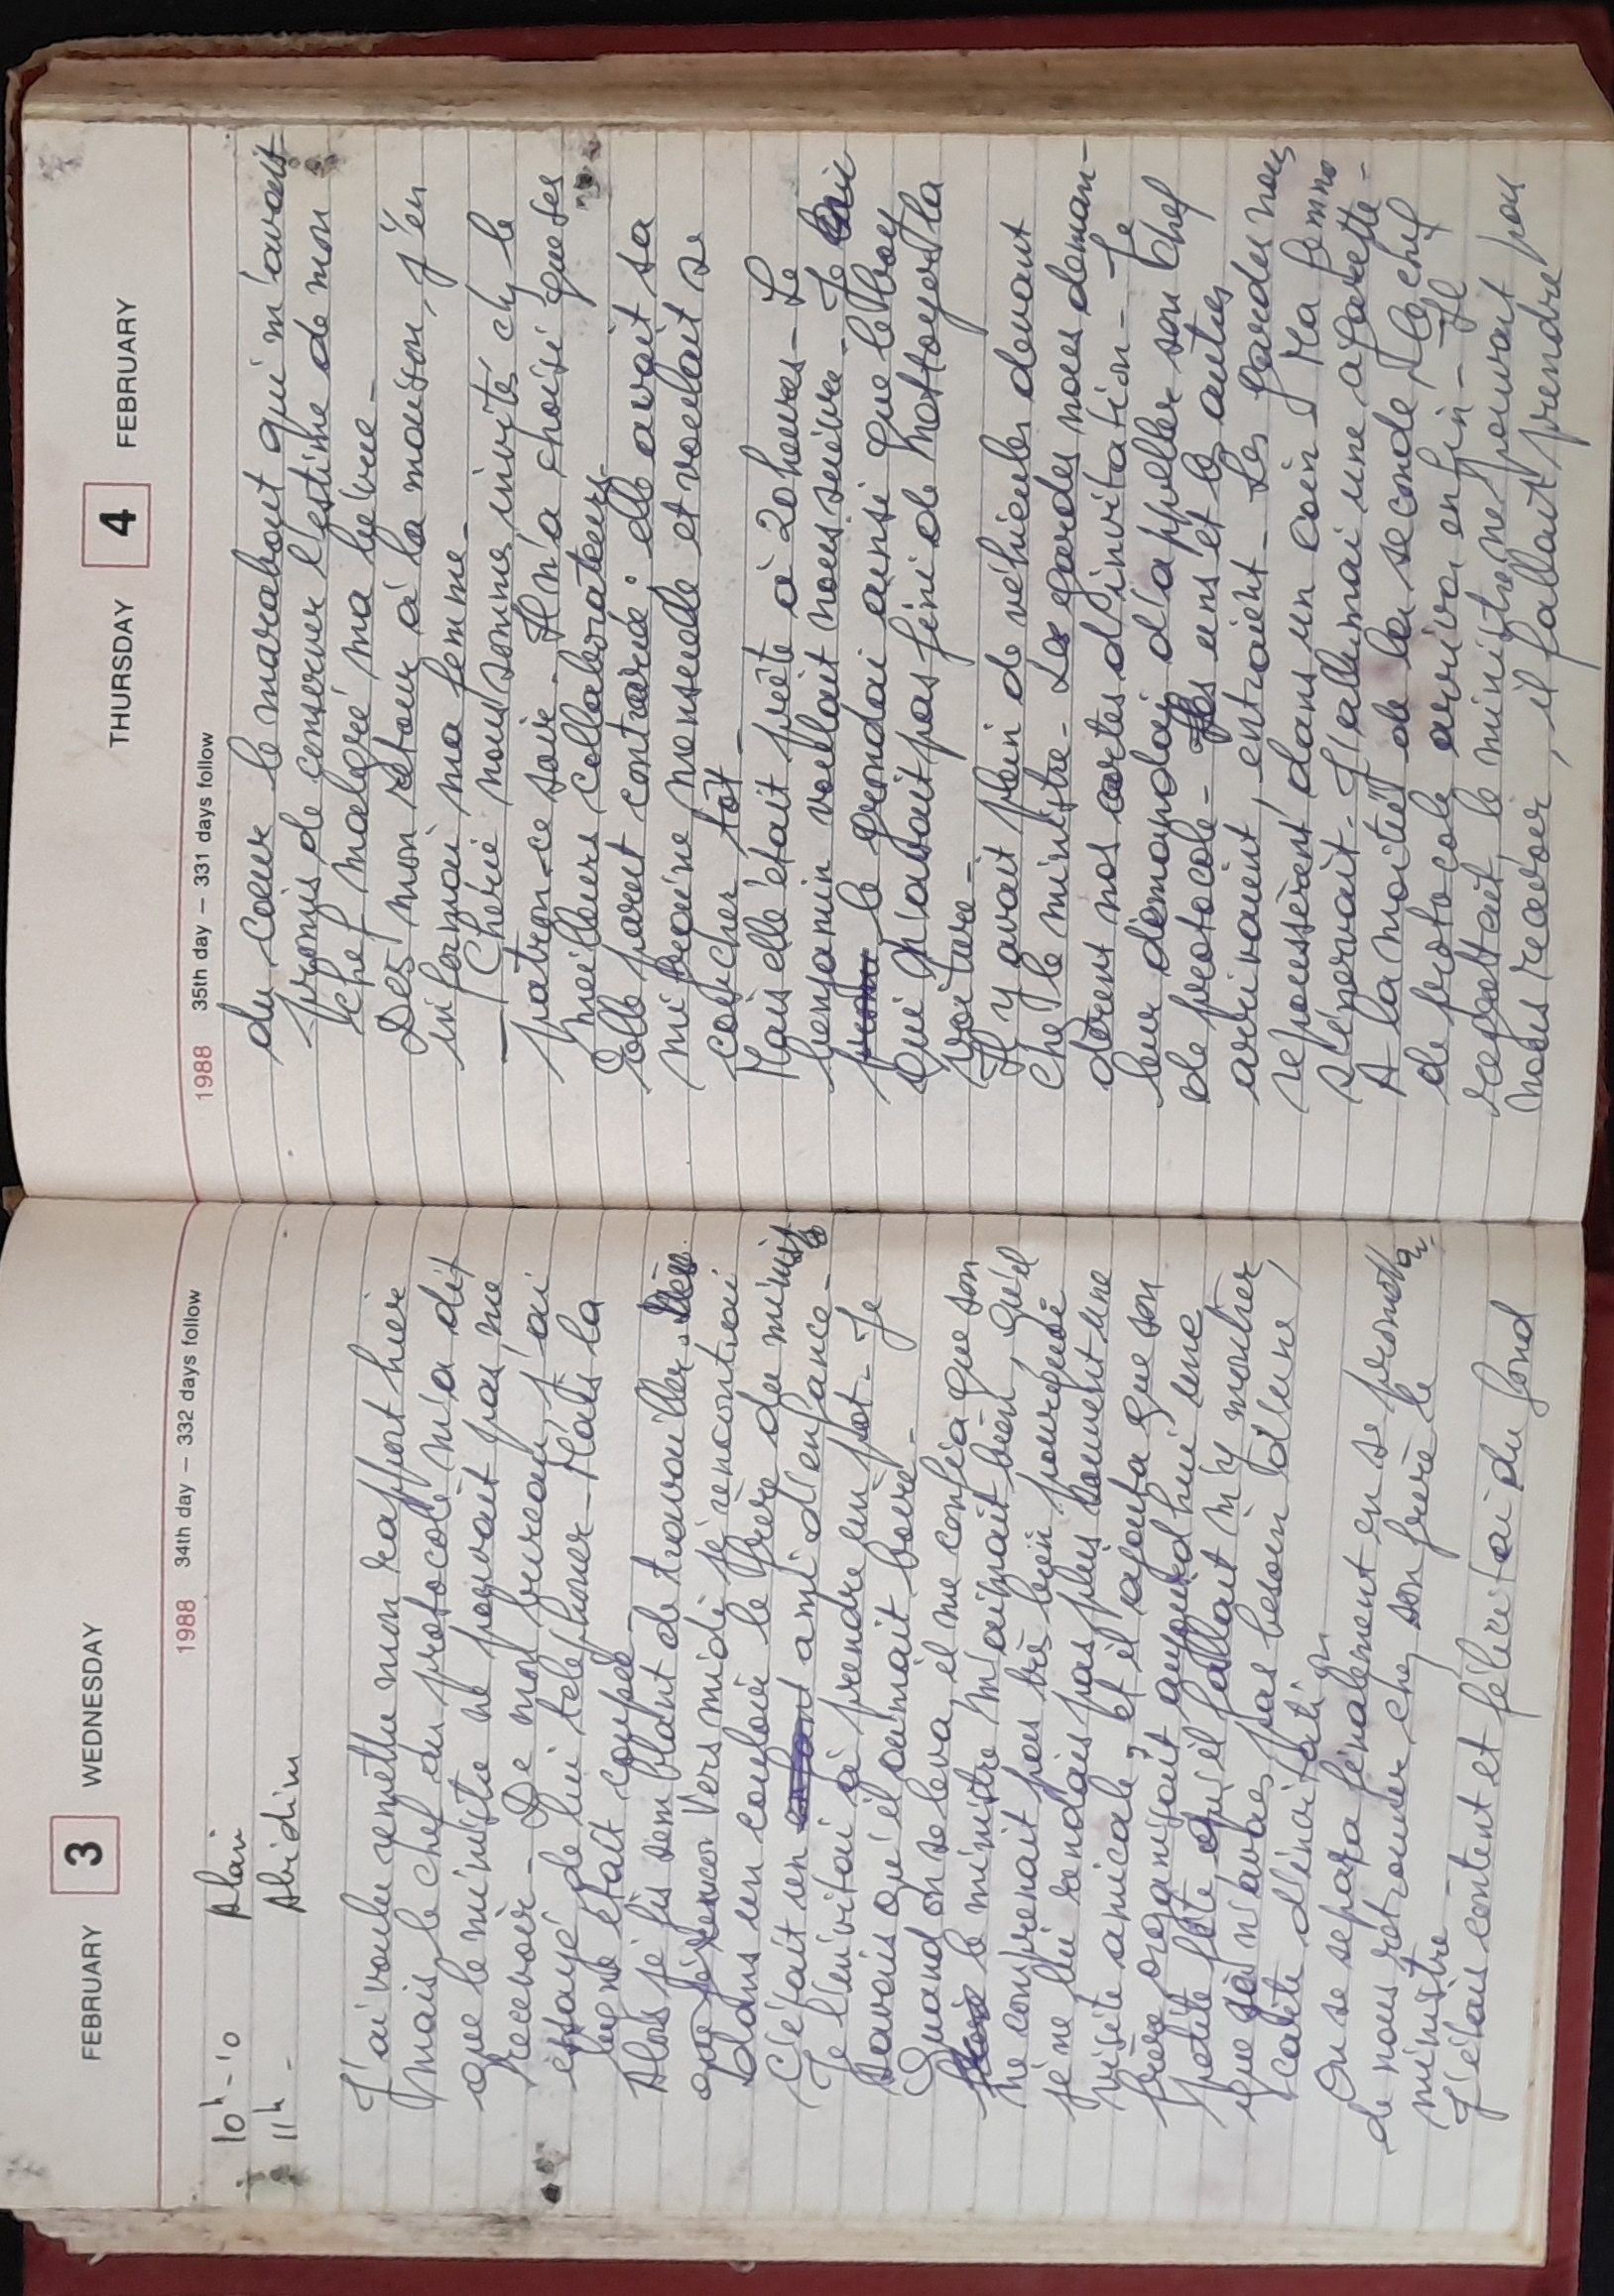 FEBRUARY 3 WEDNESDAY
1988 34th day – 332 days follow
10h - 10 Alari
11h - Abidim
J'ai voulu remettre mon rapport hier
mais le chef du protocole m'a dit
que le ministre ne pouvait pas me
recevoir - De mon bureau j'ai
essayé de lui téléphoner - Mais la
ligne était coupée -
Alors je fis semblant de travailler.
que je Vers midi je rencontrai
Dans un couloir le frère du ministre
C'était un ami d'enfance -
Je l'invitai à prendre un pot - Je
savais qu'il aimait boire -
Quand on se leva, il me confia que son
le ministre m'aimait bien, qu'il
ne comprenait pas très bien pourquoi
je ne lui rendais pas plus souvent une
visite amicale, et il ajouta que son
frère organisait aujourd'hui une
petite fête et qu'il fallait m'y montrer
que je n'avais pas besoin d'une
carte d'invitation
On se sépara finalement en se promettant
de nous retrouver chez son frère le
ministre -
J'étais content et félicitai du fond
THURSDAY 4 FEBRUARY
1988 35th day – 331 days follow
du coeur le marabout qui m'avait
promis de conserver l'estime de mon
chef malgré ma bévue -
Dès mon retour à la maison, j'en
informai ma femme -
- Chérie nous sommes invités chez le
patron ce soir - Il n'a choisi que ses
meilleurs collaborateurs -
Elle parut contrariée : elle avait sa
migraine mensuelle et voulait se
coucher tôt -
Mais elle était prête à 20 heures - Le
benjamin voulait nous suivre - Je
le grondai ainsi que le boy
qui n'avait pas fini de nettoyer la
voiture -
Il y avait plein de véhicules devant
chez le ministre - Les gardes nous deman-
dèrent nos cartes d'invitation - Je
leur demandai d'appeller son chef
de protocole - Les uns et les autres
arrivaient, entraient - Les gardes nous
repoussèrent dans un coin - Ma femme
s'énervait - J'allumai une cigarette -
A la moitié de la seconde, le chef
de protocole arriva enfin - Il
regrettait, le ministre ne pouvait pas
nous recevoir, il fallait prendre